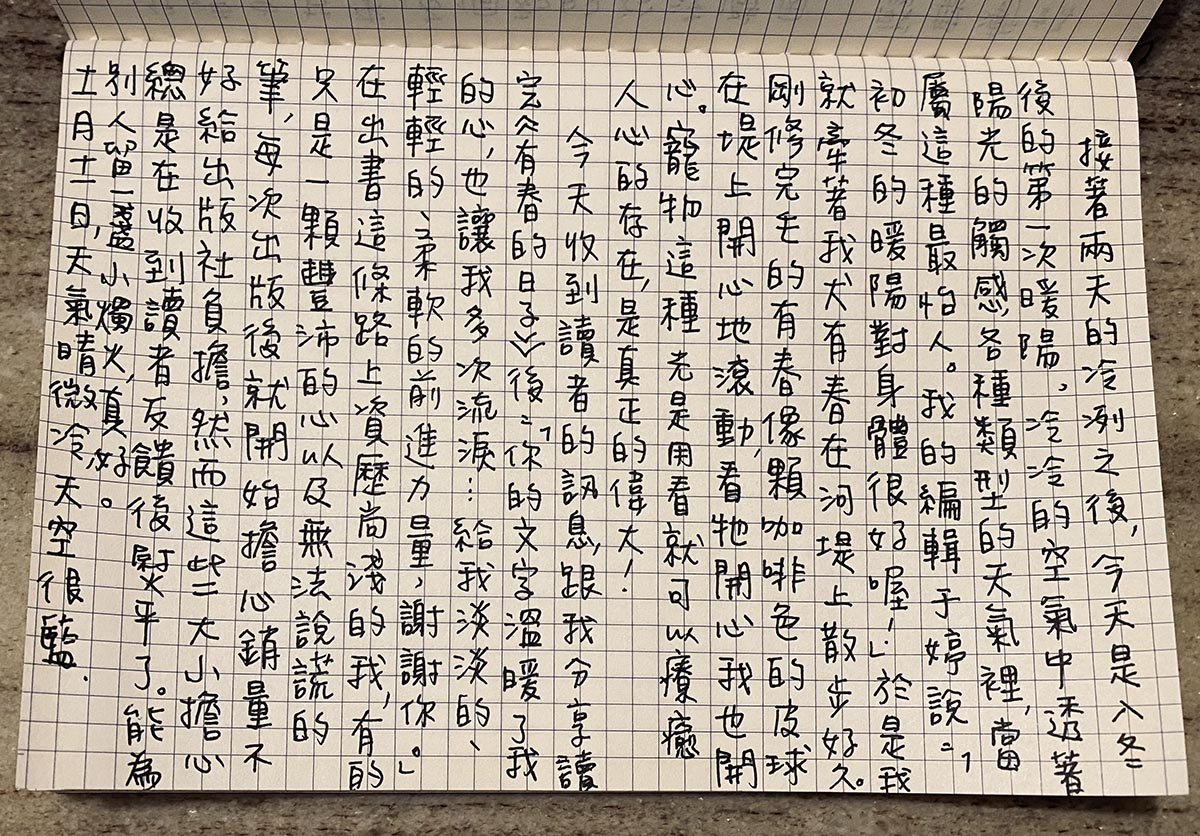 接著兩天的冷冽之後，今天是入冬
後的第一次暖陽，冷冷的空氣中透著
陽光的觸感，各種類型的天氣裡，當
屬這種最怡人。我的編輯于婷說：「
初冬的暖陽對身體很好喔！」於是我
就牽著我犬有春在河堤上散步好久。
剛修完毛的有春像顆咖啡色的皮球
在堤上開心地滾動，看牠開心我也開
心。寵物這種光是用看就可以療癒
人心的存在，是真正的偉大！
今天收到讀者的訊息，跟我分享讀
完《有春的日子》後：「你的文字溫暖了我
的心，也讓我多次流淚…給我淡淡的、
輕輕的、柔軟的前進力量，謝謝你。」
在出書這條路上資歷尚淺的我，有的
只是一顆豐沛的心以及無法說謊的
筆，每次出版後就開始擔心銷量不
好給出版社負擔，然而這些大小擔心
總是在收到讀者反饋後熨平了。能為
別人留一盞小燭火，真好。
十一月十一日，天氣晴微冷，天空很藍.